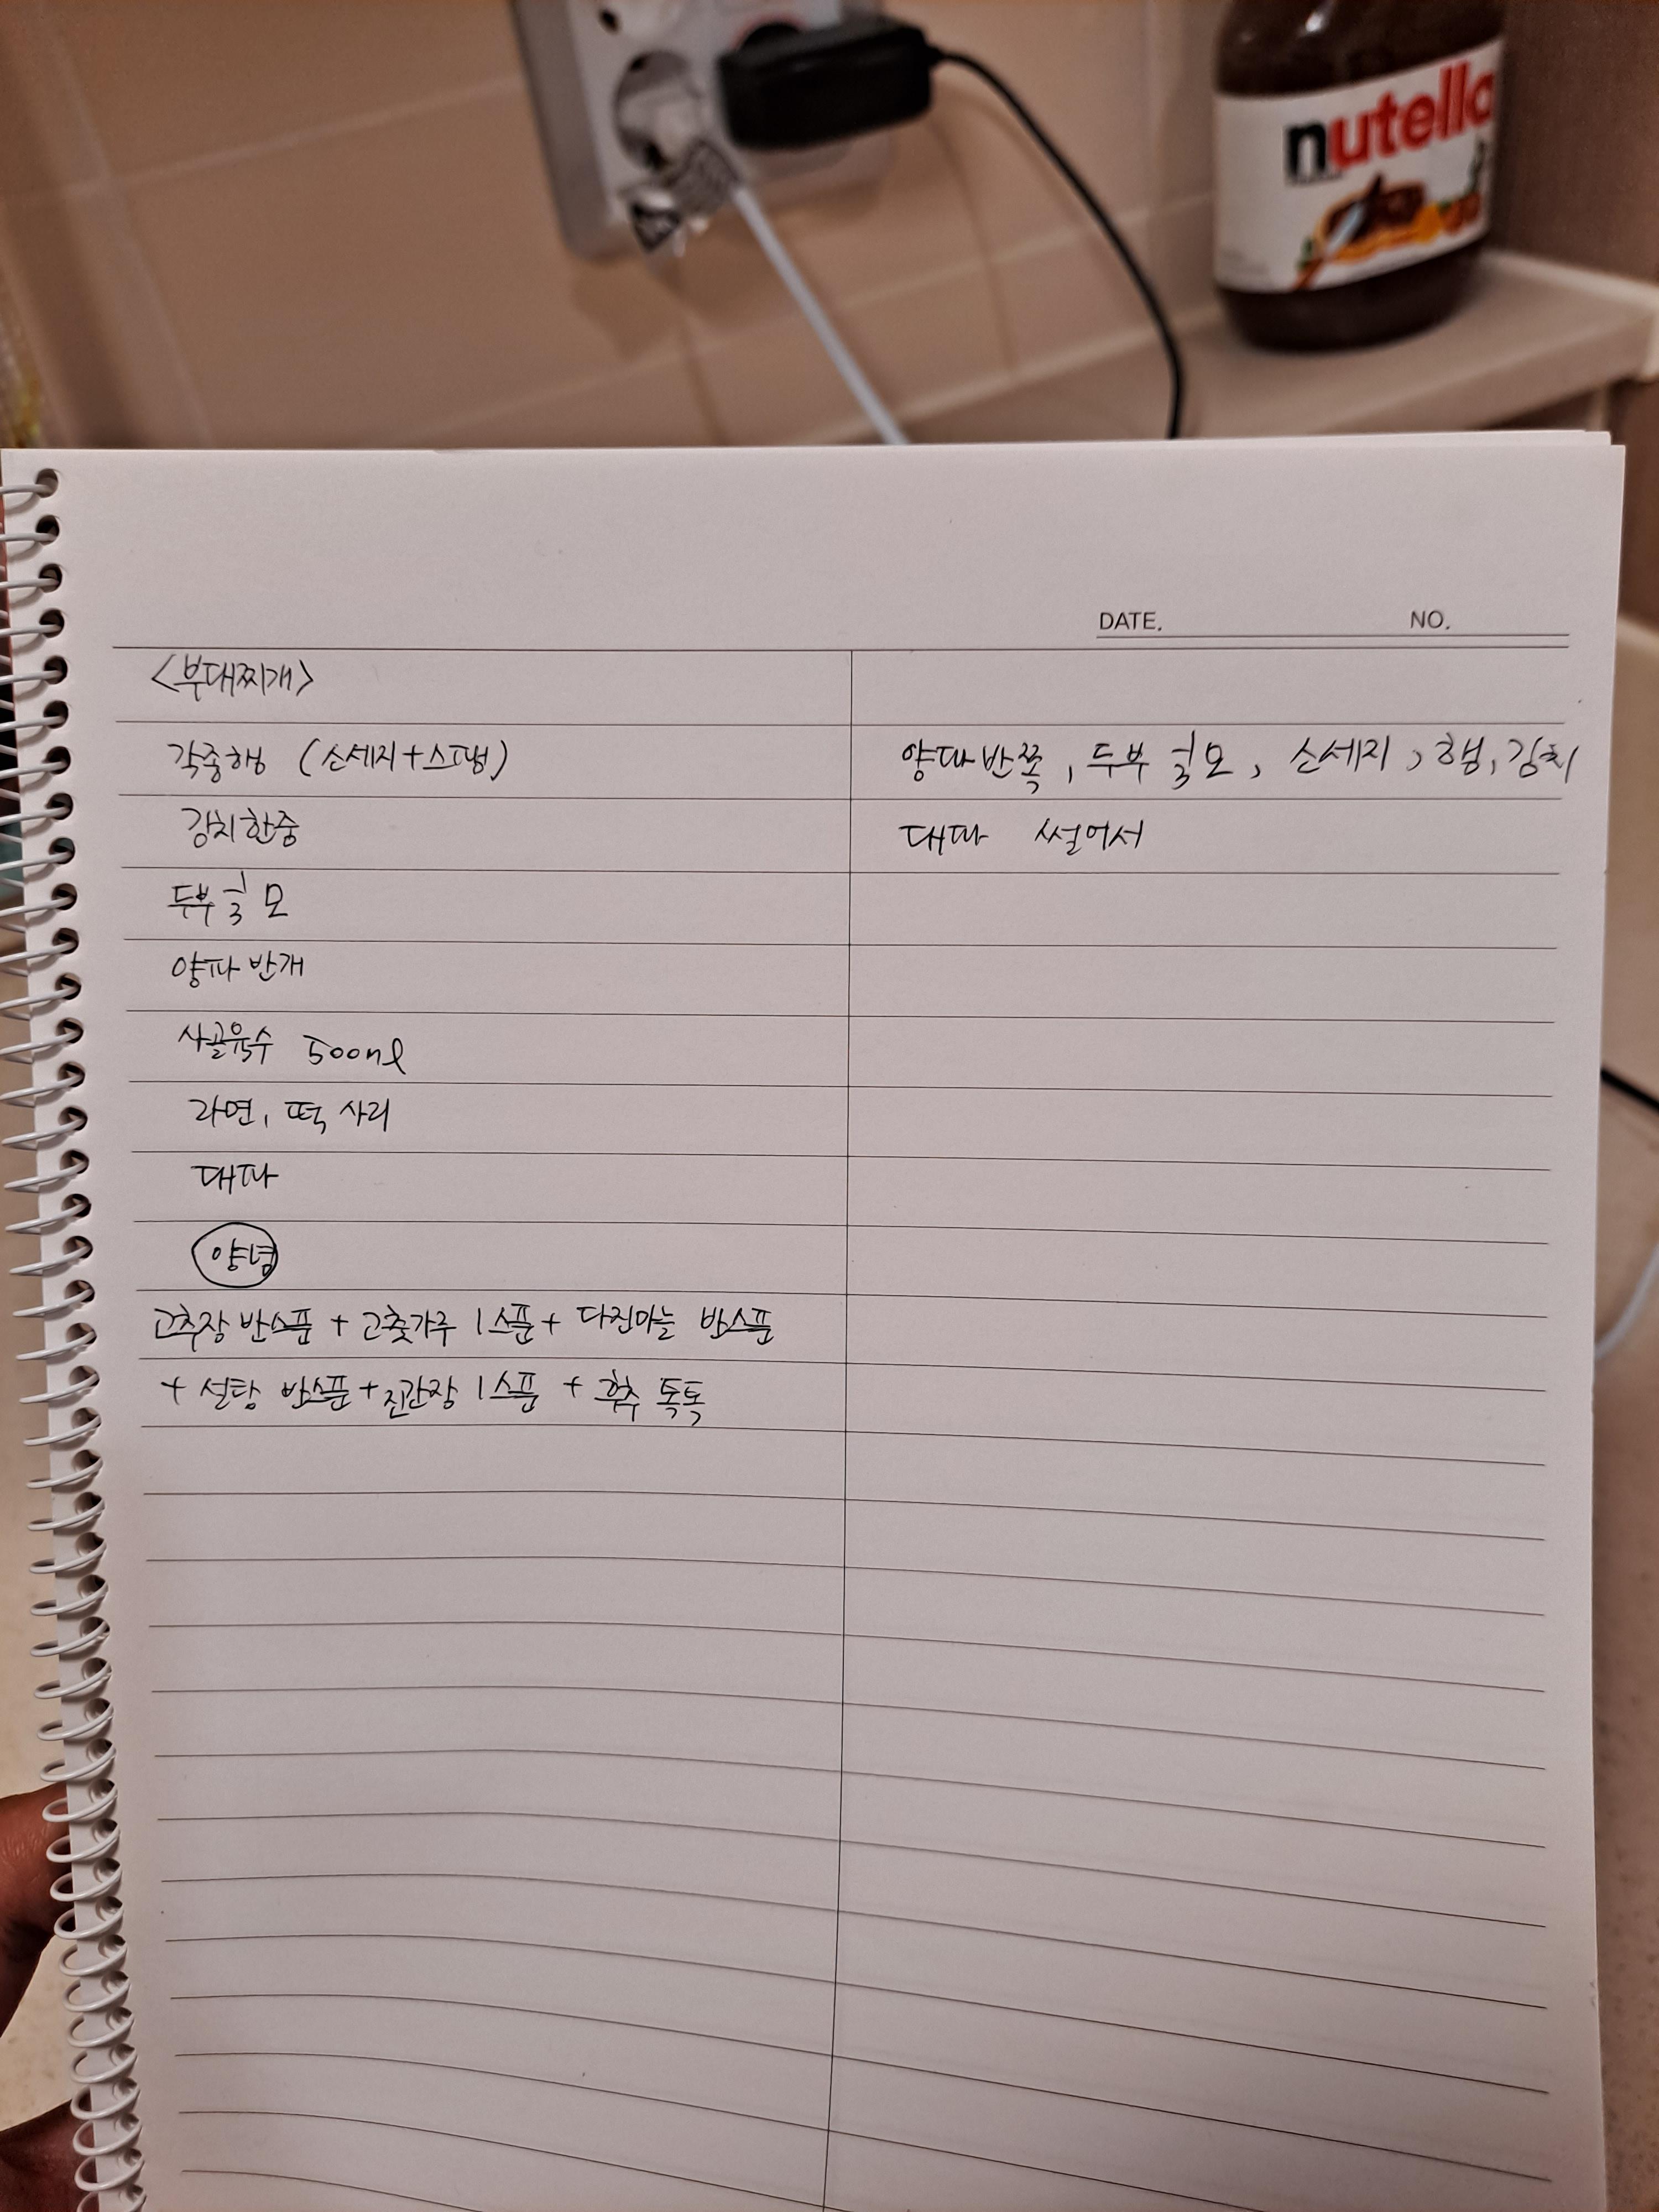 nutella
DATE. NO.
<부대찌개>
각종햄 (소세지+스팸)
김치 한줌
두부 1/3 모
양파 반개
사골육수 500ml
라면, 떡 사리
대파
양념
고추장 반스푼 + 고춧가루 1스푼 + 다진마늘 반스푼
+ 설탕 반스푼 + 진간장 1스푼 + 후추 톡톡
양파 반쪽, 두부 1/3모, 소세지, 햄, 김치
대파 썰어서